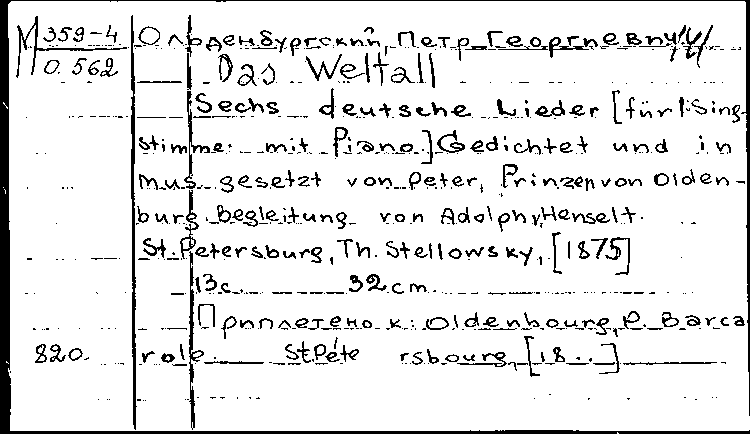 М 359-4 Ольденбургский, Петр Георгиевич
О. 562 Das Weltall
Sechs deutsche Lieder [für 1 Sing-
stimme mit Piano.] Gedichtet und in
Mus. gesetzt von Peter, Prinzen von Olden-
burg. Begleitung von Adolph Henselt.
St. Petersburg, Th. Stellowsky, [1875]
13 с. 32 cm.
Приплетено к: Oldenbourg, P. Barca-
820. role. St. Péte rsbourg, [18..]